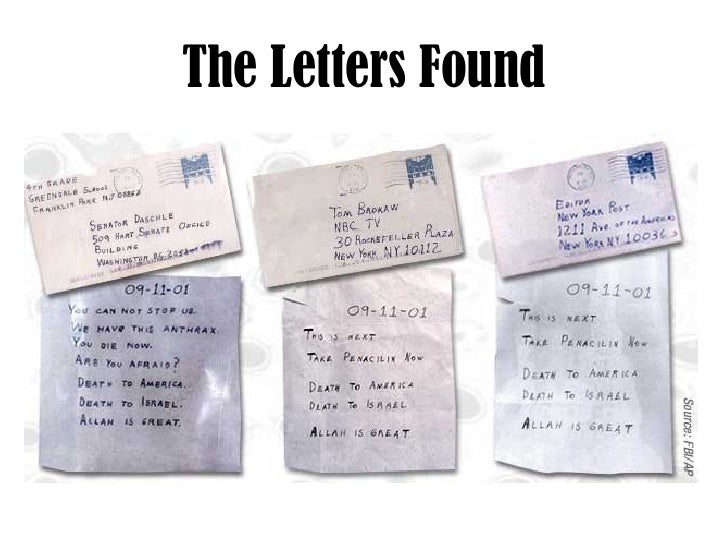 The Letters Found
4TH GRADE
GREENDALE SCHOOL
FRANKLIN PARK NJ 08852
SENATOR DASCHLE
509 HART SENATE OFFICE
BUILDING
WASHINGTON D.C. 205
09-11-01
YOU CAN NOT STOP US.
WE HAVE THIS ANTHRAX.
YOU DIE NOW.
ARE YOU AFRAID?
DEATH TO AMERICA.
DEATH TO ISRAEL.
ALLAH IS GREAT.
TOM BROKAW
NBC TV
30 ROCKEFELLER PLAZA
NEW YORK NY 10112
09-11-01
THIS IS NEXT
TAKE PENACILIN NOW
DEATH TO AMERICA
DEATH TO ISRAEL
ALLAH IS GREAT
EDITOR
NEW YORK POST
1211 AVE. OF THE AMERICAS
NEW YORK NY 10036
09-11-01
THIS IS NEXT
TAKE PENACILIN NOW
DEATH TO AMERICA
DEATH TO ISRAEL
ALLAH IS GREAT
Source: FBI/AP